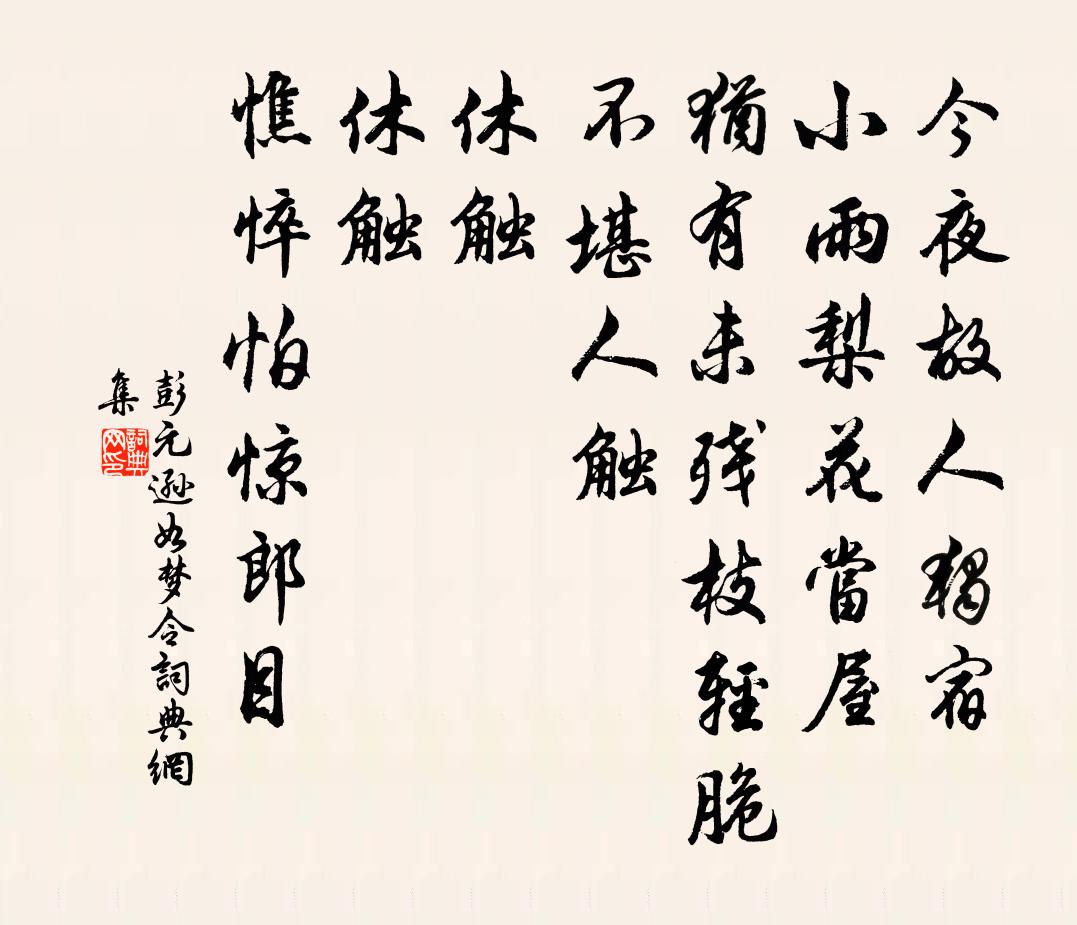 今夜故人獨宿
小雨梨花當屋
猶有未残枝輕脆
不堪人触
休触
休触
憔悴怕惊郎目
彭元遜如梦令詞典網
集
詞典网印